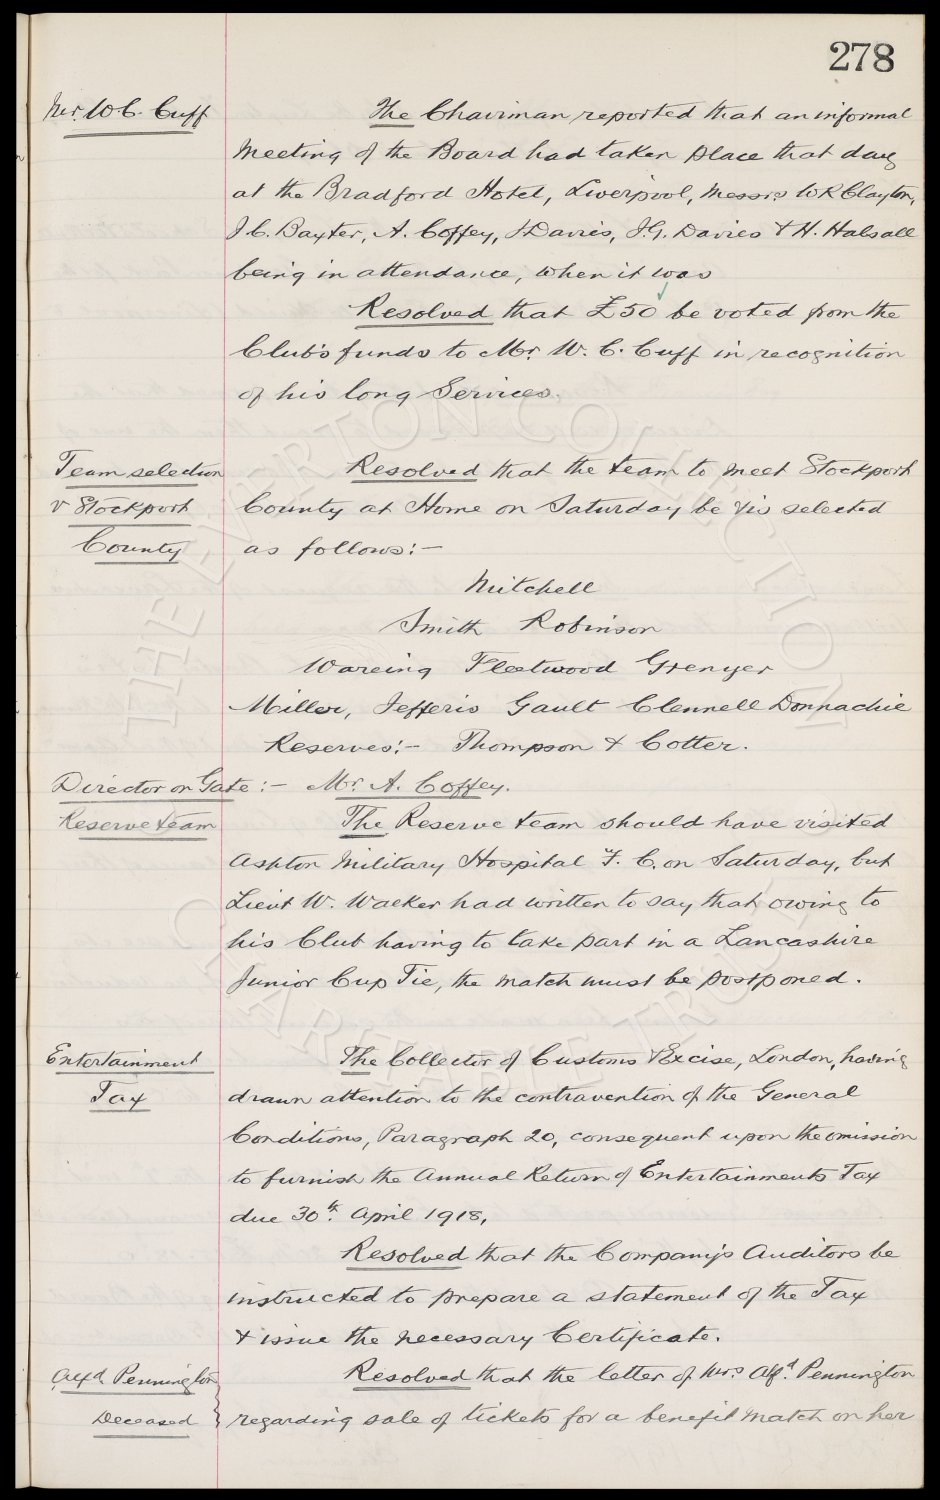 278
Mr. W C. Cuff
The Chairman reported that an informal
Meeting of the Board had taken place that day
at the Bradford Hotel, Liverpool, Messrs W R Clayton,
J C. Baxter, A. Coffey, J Davies, J. G. Davies & H. Halsall
being in attendance, when it was
Resolved that £50 be voted from the
Club's funds to Mr. W. C. Cuff in recognition
of his long Services.
Team selection
v Stockport
County
Resolved that the team to meet Stockport
County at Home on Saturday be selected
as follows:-
Mitchell
Smith Robinson
Wareing Fleetwood Grenyer
Miller, Jefferis Gault Clennell Donnachie
Reserves:- Thompson & Cotter.
Director on Gate :- Mr. A. Coffey.
Reserve team
The Reserve team should have visited
Ashton Military Hospital F. C. on Saturday, but
Lieut W. Walker had written to say that owing to
his Club having to take part in a Lancashire
Junior Cup Tie, the match must be postponed.
Entertainment
Tax
The Collector of Customs & Excise, London, having
drawn attention to the contravention of the General
Conditions, Paragraph 20, consequent upon the omission
to furnish the Annual Return of Entertainments Tax
due 30th. April 1918,
Resolved that the Company's Auditors be
instructed to prepare a statement of the Tax
& issue the necessary Certificate.
Alfd Pennington
Deceased
Resolved that the letter of Mrs Alfd. Pennington
regarding sale of tickets for a benefit match on her
THE EVERTON COLLECTION
CHARITABLE TRUST